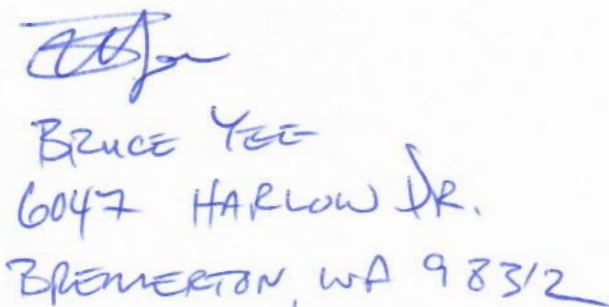 BRUCE YEE
6047 HARLOW DR.
BREMERTON, WA 98312